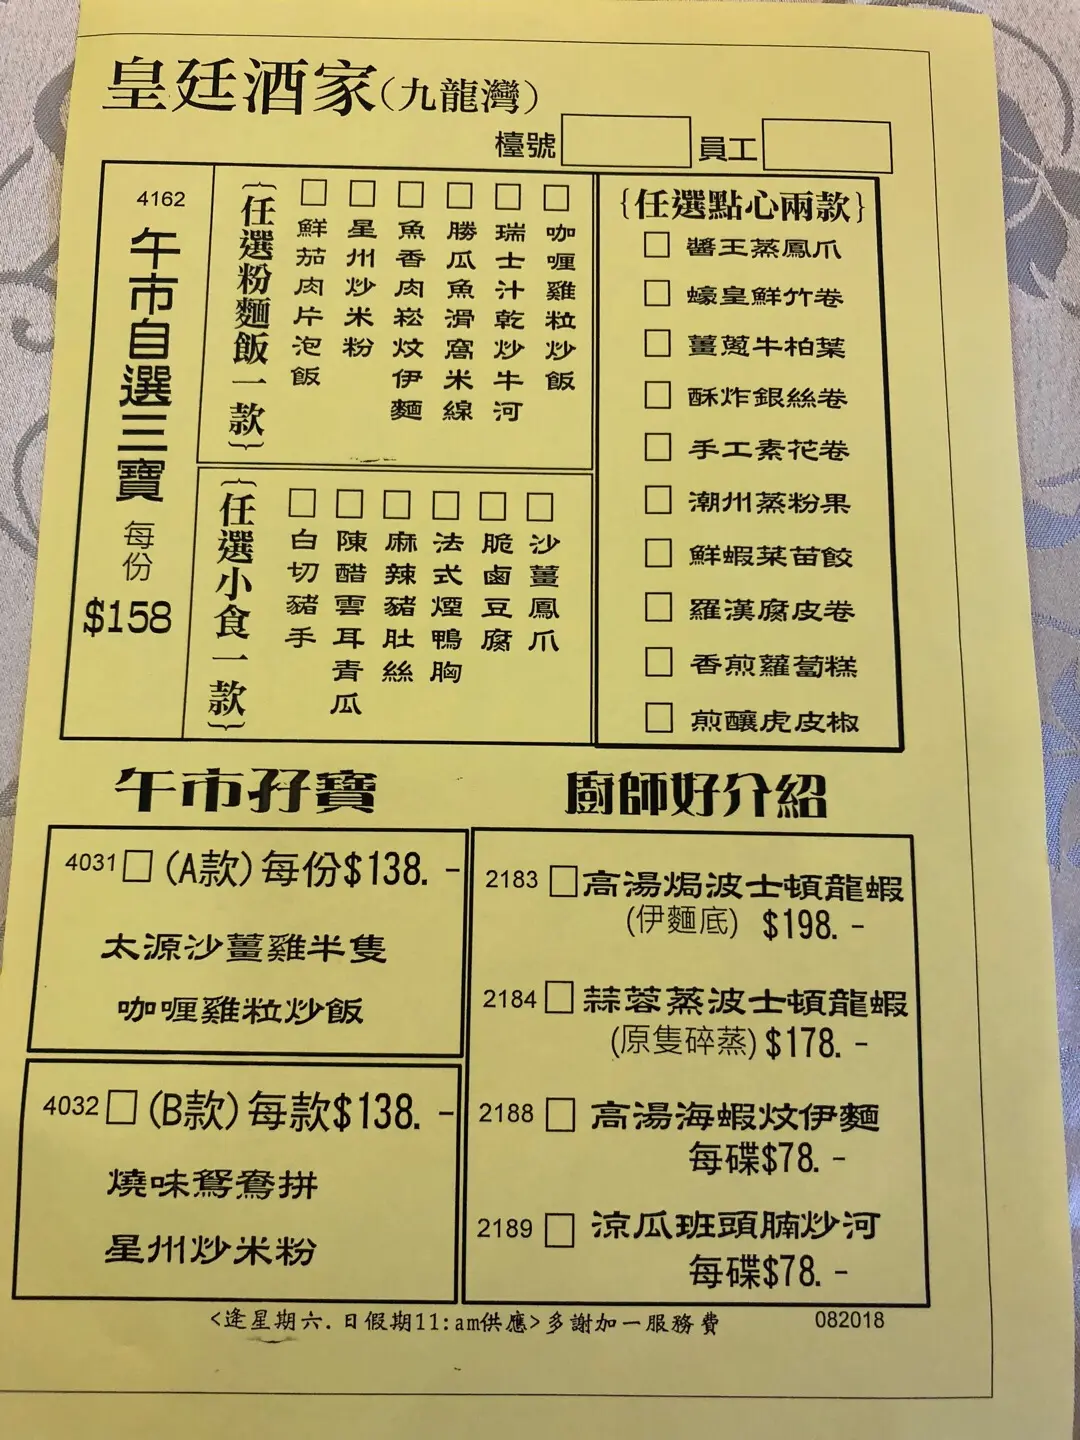 皇廷酒家(九龍灣)
檯號
員工
4162
午市自選三寶
每份
$158
{任選粉麵飯一款}
鮮茄肉片泡飯
星州炒米粉
魚香肉崧炆伊麵
勝瓜魚滑窩米線
瑞士汁乾炒牛河
咖喱雞粒炒飯
{任選小食一款}
白切豬手
陳醋雲耳青瓜
麻辣豬肚絲
法式煙鴨胸
脆鹵豆腐
沙薑鳳爪
{任選點心兩款}
醬王蒸鳳爪
蠔皇鮮竹卷
薑蔥牛柏葉
酥炸銀絲卷
手工素花卷
潮州蒸粉果
鮮蝦菜苗餃
羅漢腐皮卷
香煎蘿蔔糕
煎釀虎皮椒
午市孖寶
4031 (A款)每份$138. -
太源沙薑雞半隻
咖喱雞粒炒飯
4032 (B款)每款$138. -
燒味鴛鴦拼
星州炒米粉
廚師好介紹
2183 高湯焗波士頓龍蝦
(伊麵底) $198. -
2184 蒜蓉蒸波士頓龍蝦
(原隻碎蒸) $178. -
2188 高湯海蝦炆伊麵
每碟$78. -
2189 涼瓜班頭腩炒河
每碟$78. -
<逢星期六.日假期11:am供應>多謝加一服務費
082018